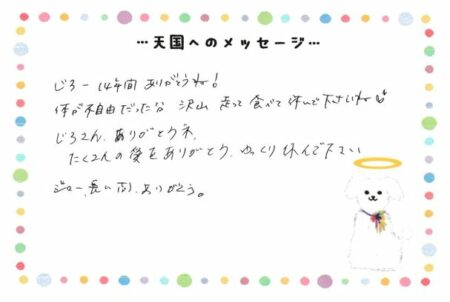 …天国へのメッセージ…
じろー 14年間 ありがとうね!
体が不自由だった分 沢山 走って 食べて 休んで下さいね
じろさん、ありがとうネ、
たくさんの愛をありがとう、ゆっくり休んで下さい
ジロー、長い間、ありがとう。